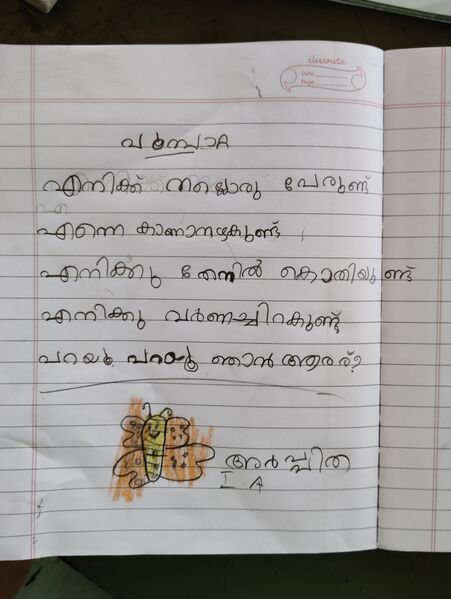 classmate
Date
Page
പൂമ്പാറ്റ
എനിക്ക് നല്ലൊരു പേരുണ്ട്
എന്നെ കാണാനഴകുണ്ട്
എനിക്കു തേനിൽ കൊതിയുണ്ട്
എനിക്കു വർണച്ചിറകുണ്ട്
പറയൂ പറയൂ ഞാൻ ആരര്?
അർപ്പിത
I.A